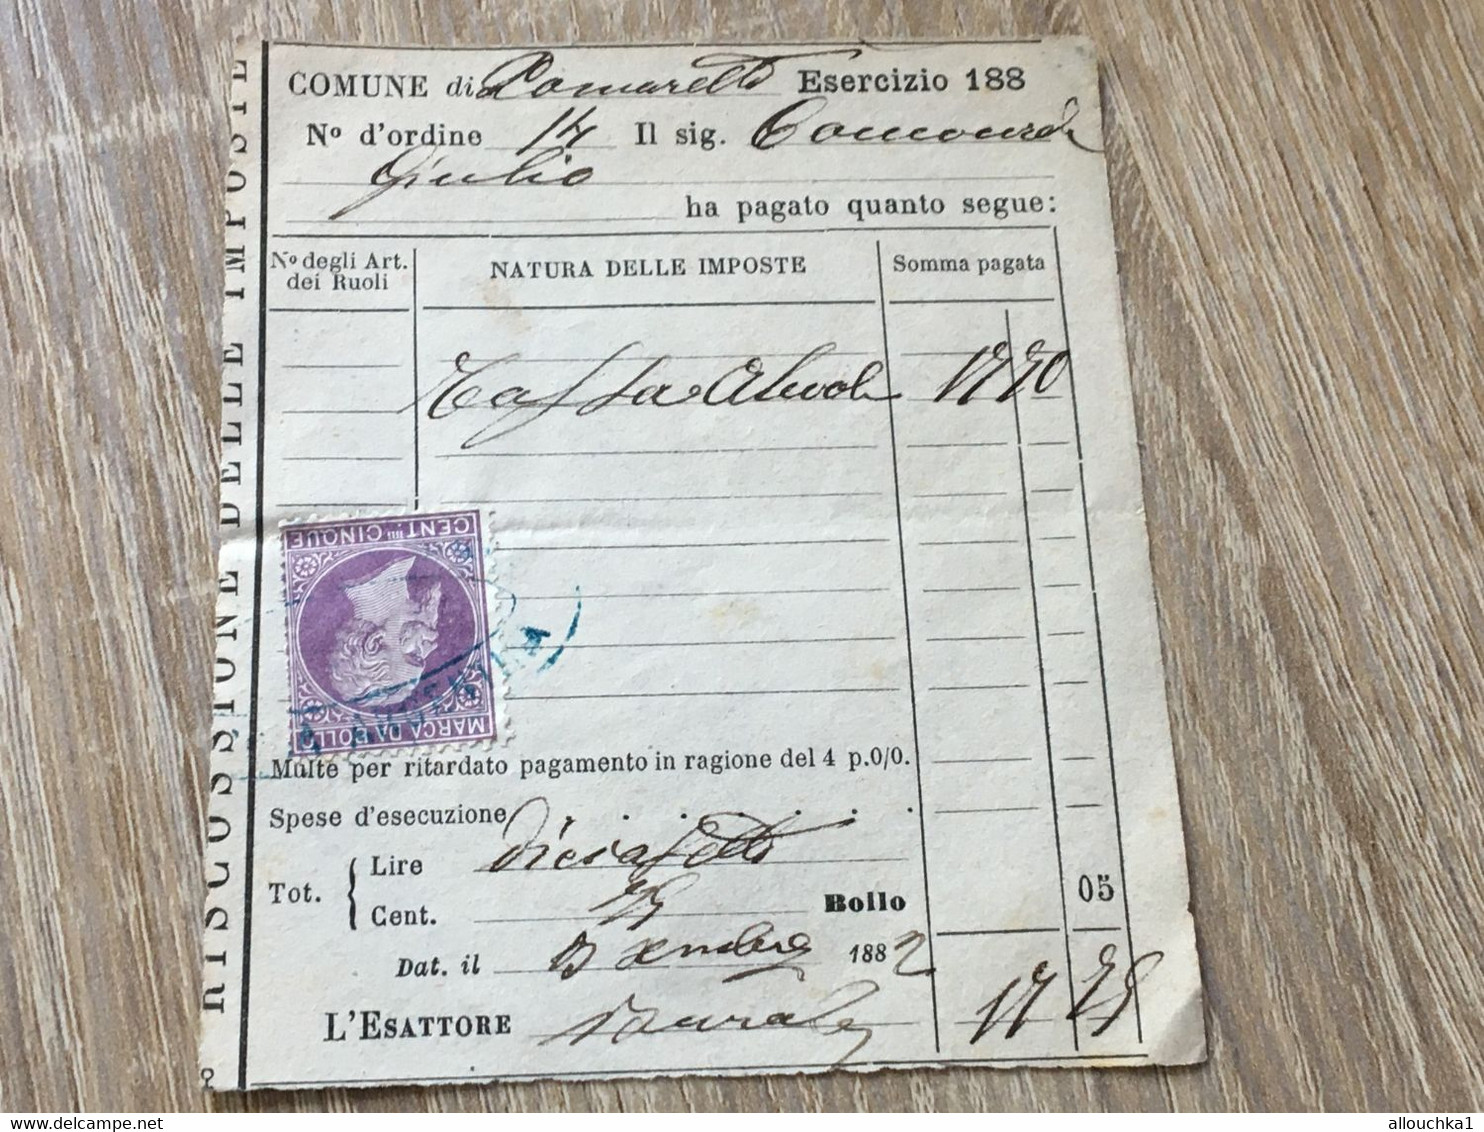 RISCOSSIONE DELLE IMPOSTE
COMUNE di Pomaretto Esercizio 188
No d'ordine 14 Il sig.
Giulio
ha pagato quanto segue:
No degli Art. dei Ruoli
NATURA DELLE IMPOSTE
Somma pagata
Tassa 17 70
CENT.mi CINQUE
MARCA DA BOLLO
Multe per ritardato pagamento in ragione del 4 p.0/0.
Spese d'esecuzione . . . . . .
Tot. Lire diciasette
Cent. 75 Bollo 05
Dat. il 1882
17 75
L'ESATTORE
allouchka1